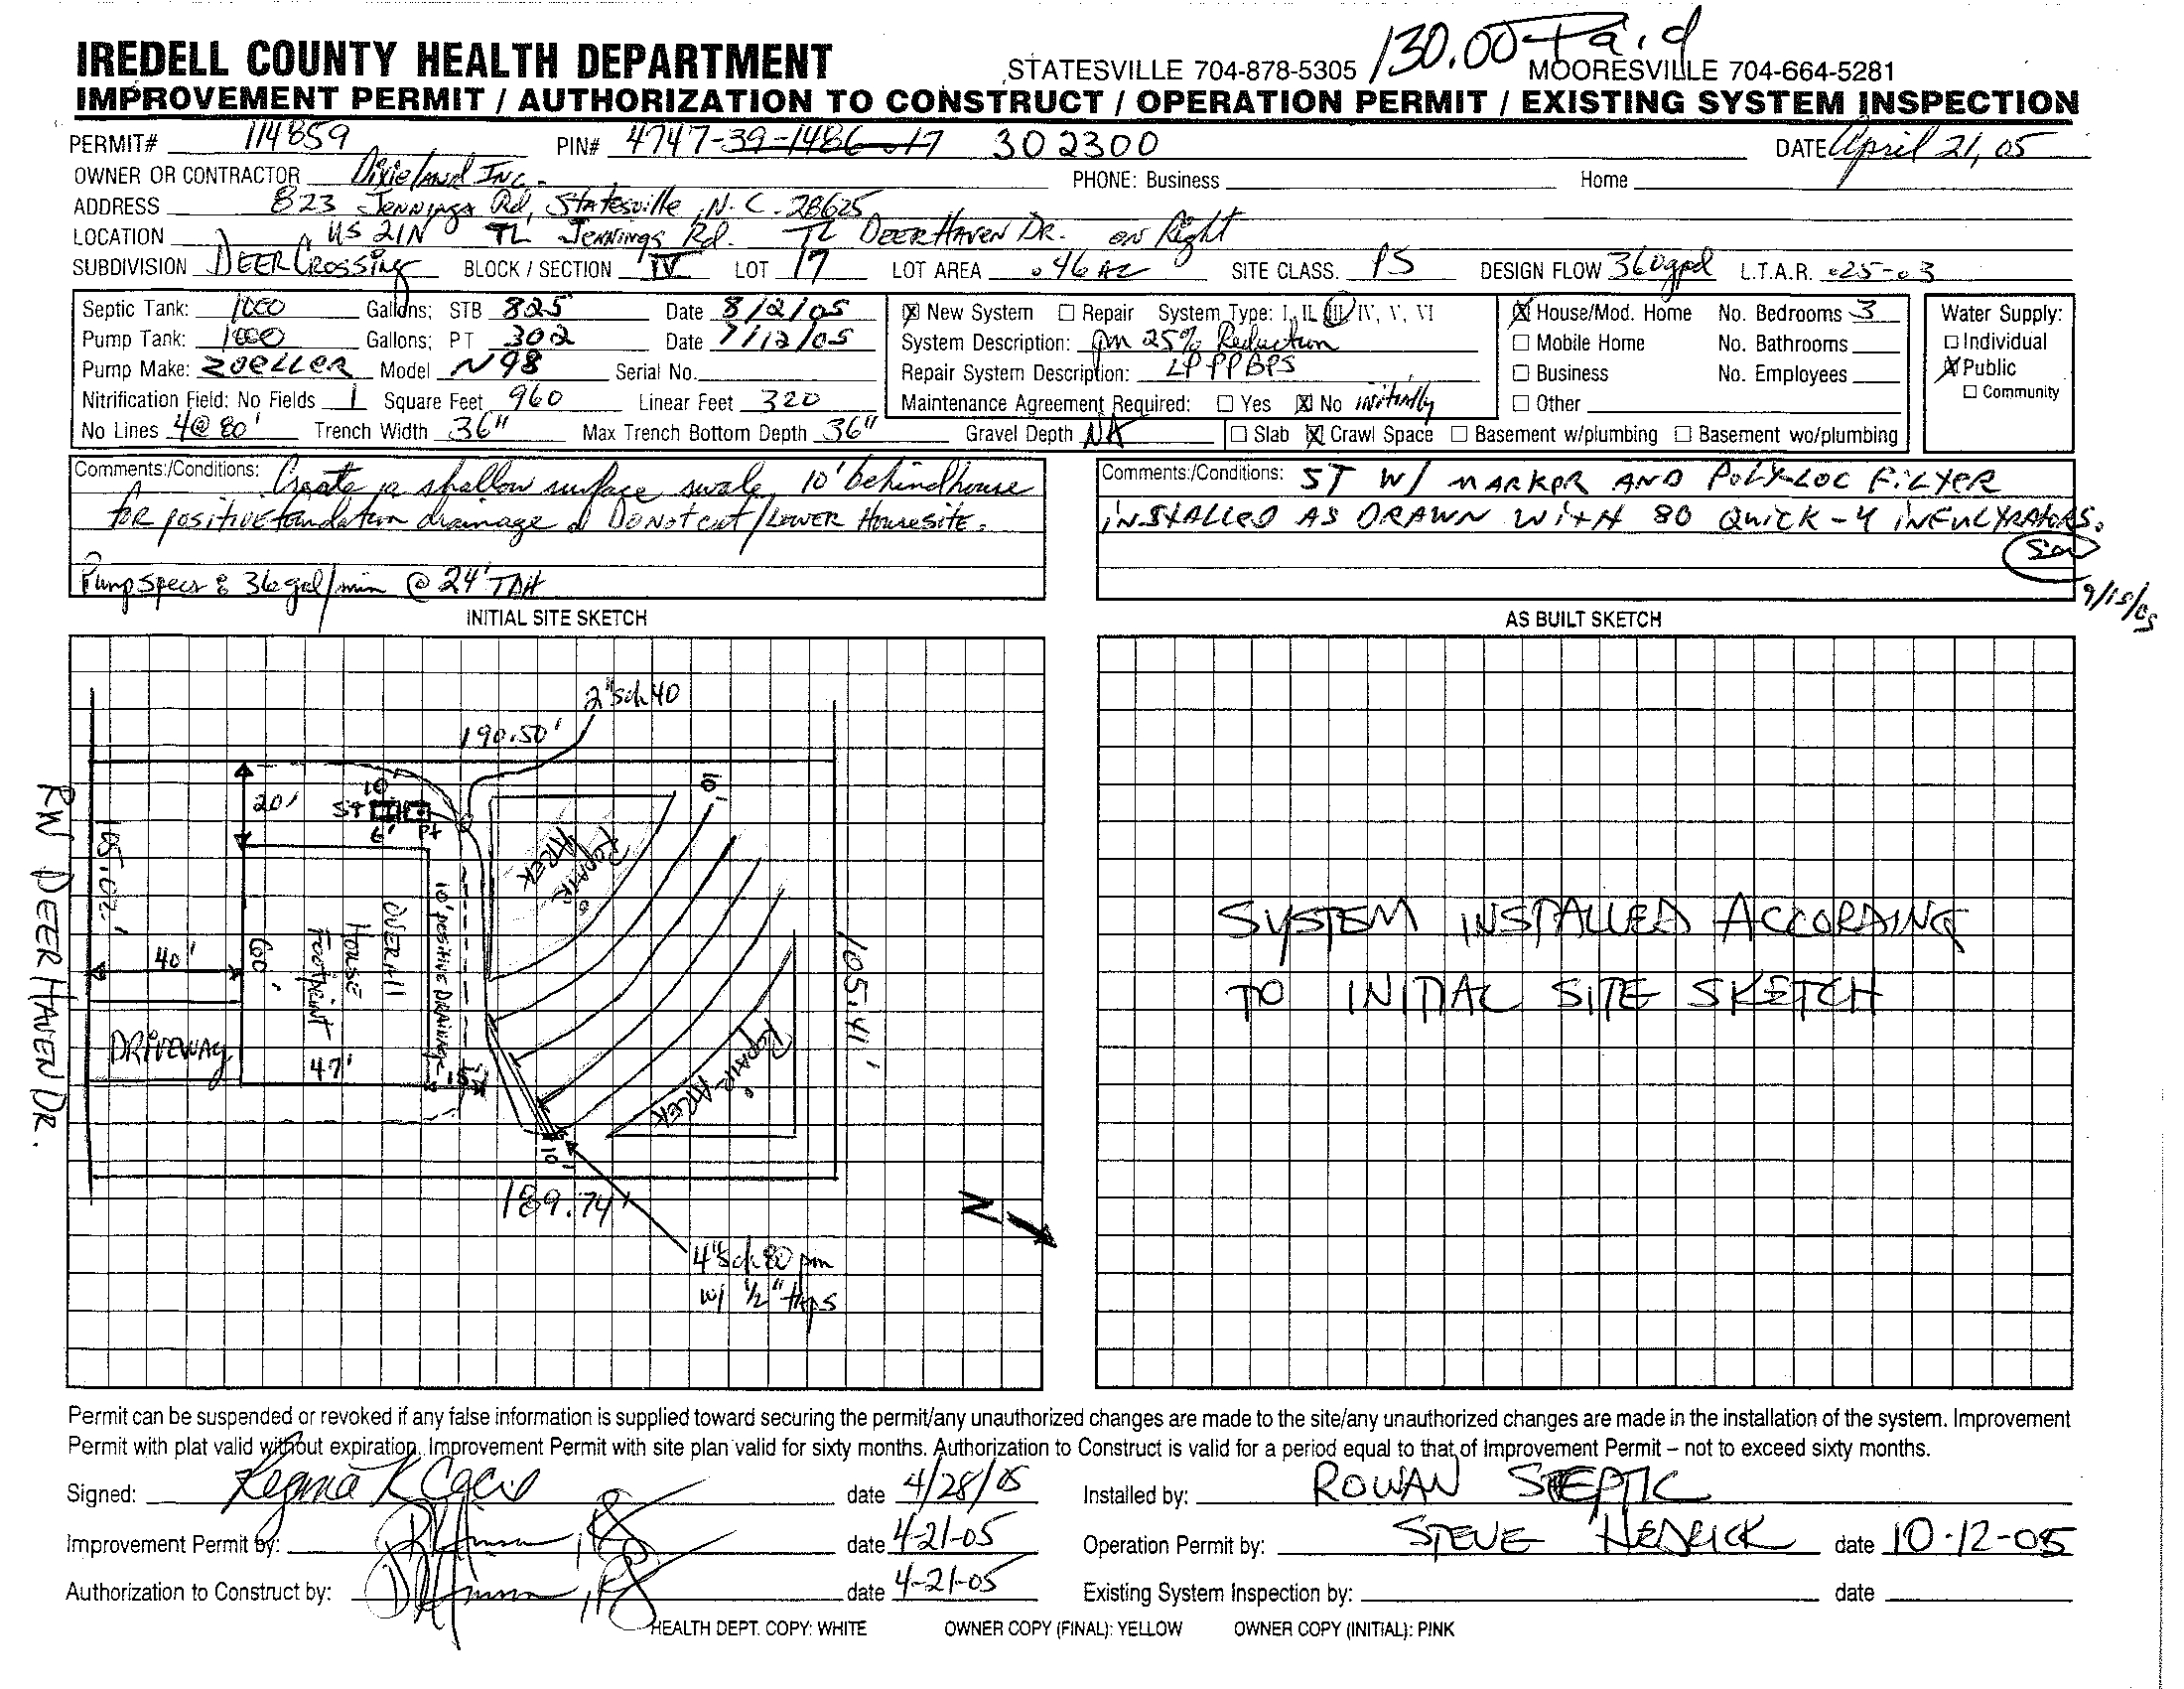 130.00 Paid
IREDELL COUNTY HEALTH DEPARTMENT STATESVILLE 704-878-5305 MOORESVILLE 704-664-5281
IMPROVEMENT PERMIT / AUTHORIZATION TO CONSTRUCT / OPERATION PERMIT / EXISTING SYSTEM INSPECTION
PERMIT# 114859 PIN# 4747-39-1486-17 302300 DATE April 21, 05
OWNER OR CONTRACTOR Dixieland Inc. PHONE: Business Home
ADDRESS 823 Jennings Rd, Statesville, N.C. 28625
LOCATION US 21N TL Jennings Rd. TL DEER HAVEN DR. on Right
SUBDIVISION DEER CROSSING BLOCK / SECTION IV LOT 17 LOT AREA .46 AC SITE CLASS. PS DESIGN FLOW 360gpd L.T.A.R. .25-.3
Septic Tank: 1000 Gallons; STB 825 Date 8/2/05
Pump Tank: 1000 Gallons; PT 302 Date 7/12/05
Pump Make: ZOELLER Model N98 Serial No.
Nitrification Field: No Fields 1 Square Feet 960 Linear Feet 320
No Lines 4@80' Trench Width 36" Max Trench Bottom Depth 36" Gravel Depth NA
New System Repair System Type: I, II, III, IV, V, VI
System Description: pm 25% Reduction
Repair System Description: LPPPBPS
Maintenance Agreement Required: Yes No initially
House/Mod. Home No. Bedrooms 3
Mobile Home No. Bathrooms
Business No. Employees
Other
Slab Crawl Space Basement w/plumbing Basement wo/plumbing
Water Supply:
Individual
Public
Community
Comments:/Conditions: Create a shallow surface swale, 10' behind house
for positive foundation drainage. Do NOT cut/LOWER House site.
Pump specs: 36 gal/min @ 24' TDH
Comments:/Conditions: ST W/ MARKER AND POLY-LOC FILTER
INSTALLED AS DRAWN WITH 80 QUICK-4 INFULTRATORS.
9/15/05
INITIAL SITE SKETCH
2" Sch 40
190.50'
10'
20'
10'
ST
6'
PT
REPAIR AREA
RW DEER HAVEN DR.
105.02'
40'
60'
OVERALL HOUSE FOOTPRINT
10' POSITIVE DRAINAGE
105.41'
DRIVEWAY
47'
15'
REPAIR AREA
10'
189.74'
N
4" Sch 80 pm
w/ 1/2" taps
AS BUILT SKETCH
SYSTEM INSTALLED ACCORDING
TO INITIAL SITE SKETCH
Permit can be suspended or revoked if any false information is supplied toward securing the permit/any unauthorized changes are made to the site/any unauthorized changes are made in the installation of the system. Improvement
Permit with plat valid without expiration. Improvement Permit with site plan valid for sixty months. Authorization to Construct is valid for a period equal to that of Improvement Permit – not to exceed sixty months.
Signed: date 4/28/05 Installed by: ROWAN SEPTIC
Improvement Permit by: , RS date 4-21-05 Operation Permit by: STEVE HEDRICK date 10-12-05
Authorization to Construct by: , RS date 4-21-05 Existing System Inspection by: date
HEALTH DEPT. COPY: WHITE OWNER COPY (FINAL): YELLOW OWNER COPY (INITIAL): PINK